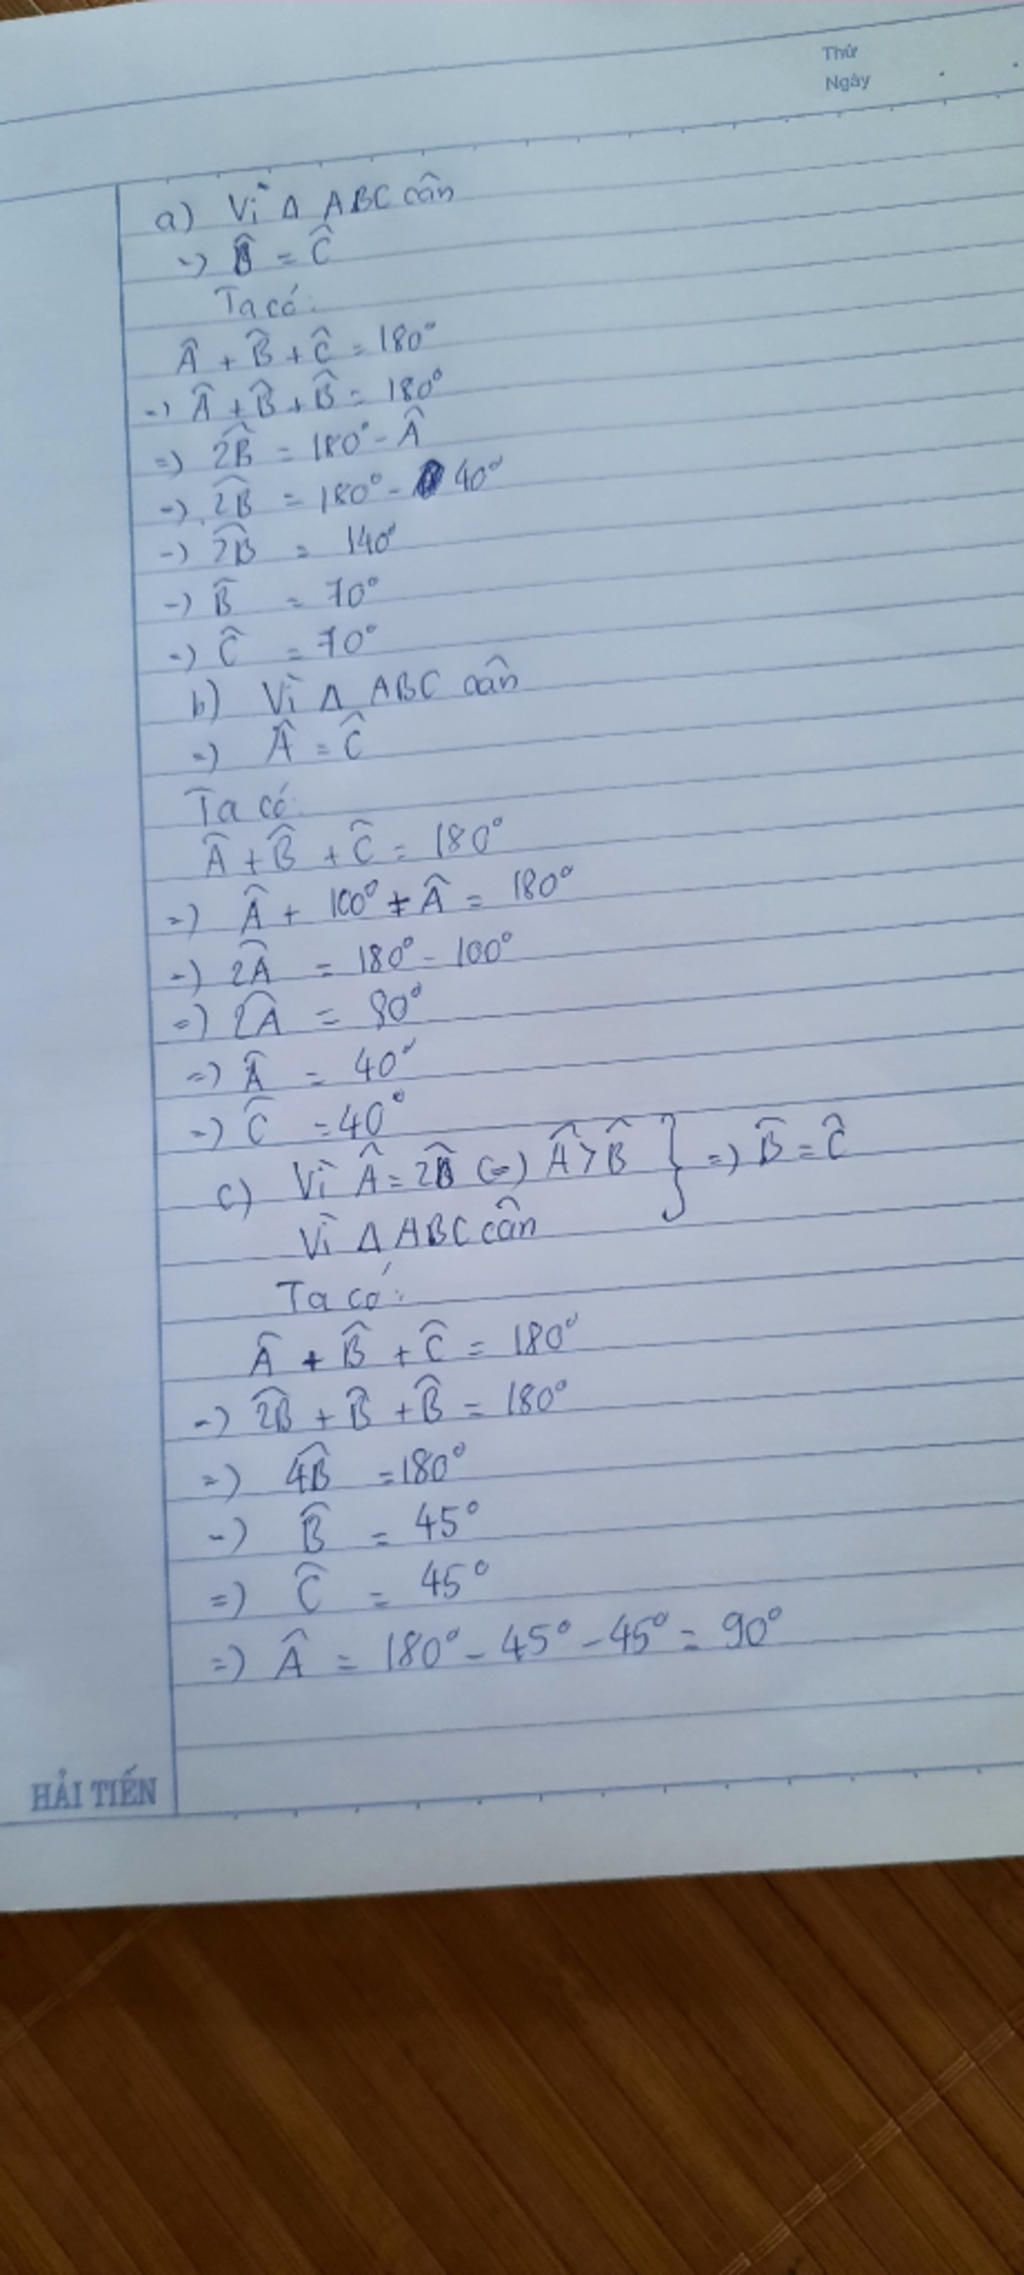 Thứ
Ngày
a) Vì Δ ABC cân
=> B̂ = Ĉ
Ta có:
Â + B̂ + Ĉ = 180°
=> Â + B̂ + B̂ = 180°
=> 2B̂ = 180° - Â
=> 2B̂ = 180° - 40°
=> 2B̂ = 140°
=> B̂ = 70°
=> Ĉ = 70°
b) Vì Δ ABC cân
=> Â = Ĉ
Ta có:
Â + B̂ + Ĉ = 180°
=> Â + 100° + Â = 180°
=> 2Â = 180° - 100°
=> 2Â = 80°
=> Â = 40°
=> Ĉ = 40°
c) Vì Â = 2B̂ (=) Â > B̂ } => B̂ = Ĉ
Vì Δ ABC cân
Ta có:
Â + B̂ + Ĉ = 180°
=> 2B̂ + B̂ + B̂ = 180°
=> 4B̂ = 180°
=> B̂ = 45°
=> Ĉ = 45°
=> Â = 180° - 45° - 45° = 90°
HẢI TIẾN